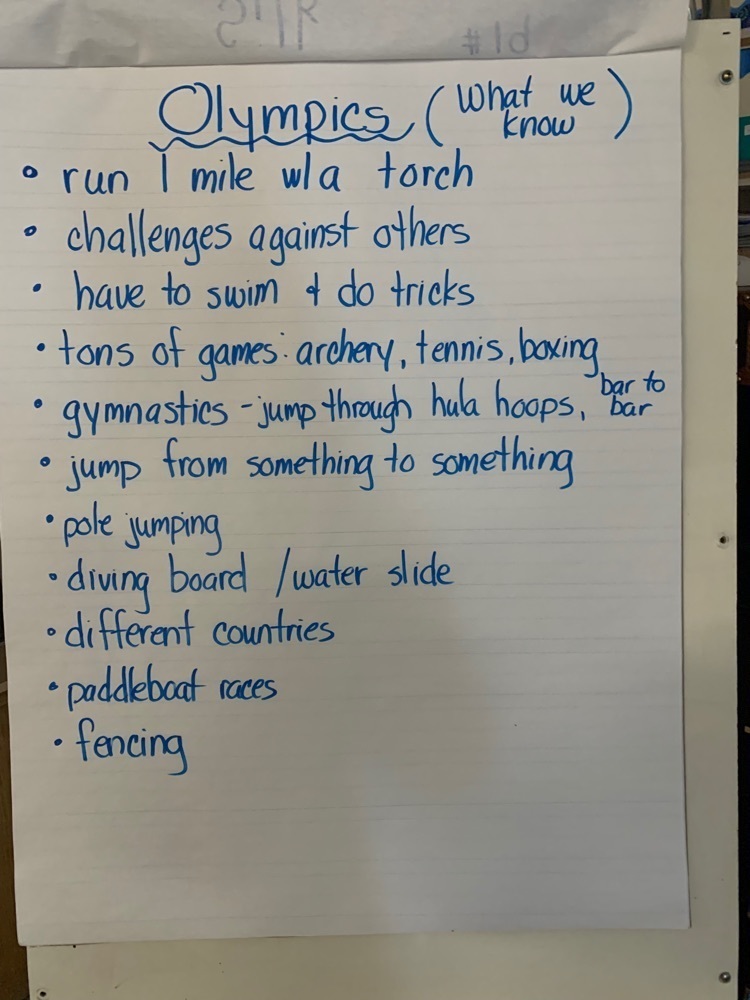 #1d
Olympics (What we know)
• run 1 mile w/a torch
• challenges against others
• have to swim & do tricks
• tons of games: archery, tennis, boxing
• gymnastics - jump through hula hoops, bar to bar
• jump from something to something
• pole jumping
• diving board / water slide
• different countries
• paddleboat races
• fencing